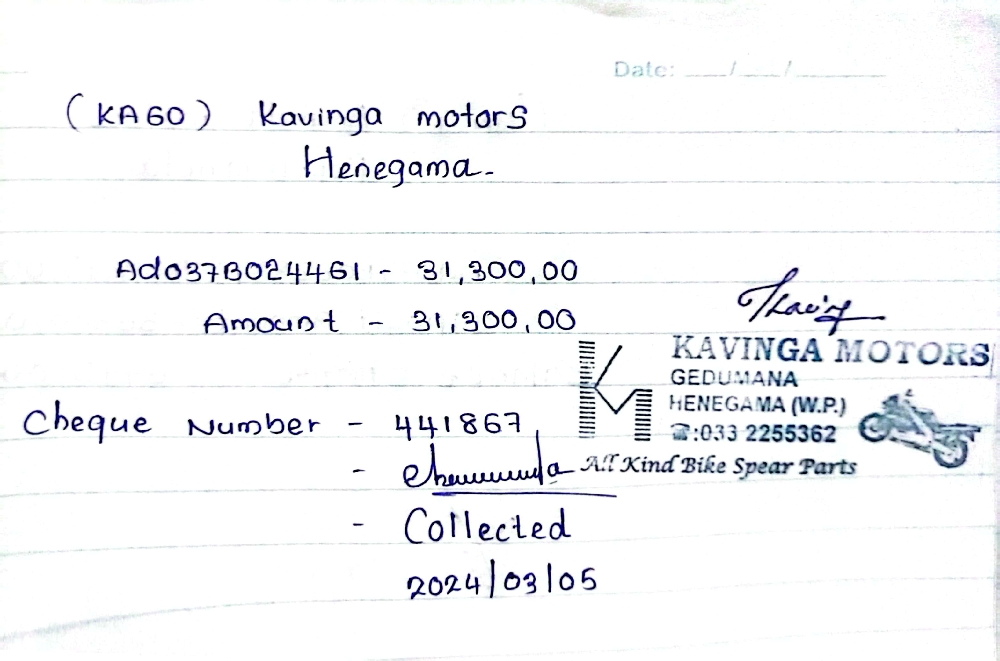 Date: __/__/____
(KA60) Kavinga motors
Henegama-
Ad037B024461 - 31,300,00
Amount - 31,300,00
KAVINGA MOTORS
GEDUMANA
HENEGAMA (W.P.)
☎:033 2255362
All Kind Bike Spear Parts
Cheque Number - 441867
-
- Collected
2024/03/05